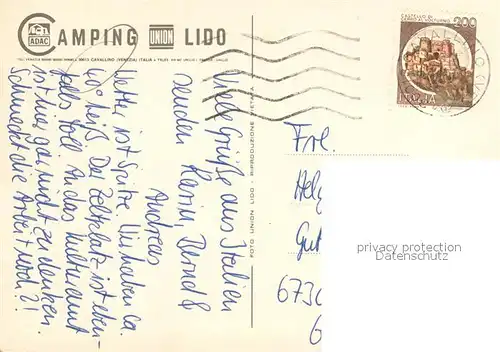 CAMPING UNION LIDO
ADAC
200
ITALIA
FOTO UNION LIDO - RIPRODUZIONE VIETATA
Viele Grüße aus Italien
senden Karin, Bernd &
Andreas
Wetter ist Spitze. Wir haben ca.
40° heiß. Der Zeltplatz ist eben-
falls toll. An das Kulturamt
ist hier gar nicht zu denken.
Schmeckt die Arbeit noch?!
Frl.
Helg
Gut
6730
privacy protection
Datenschutz